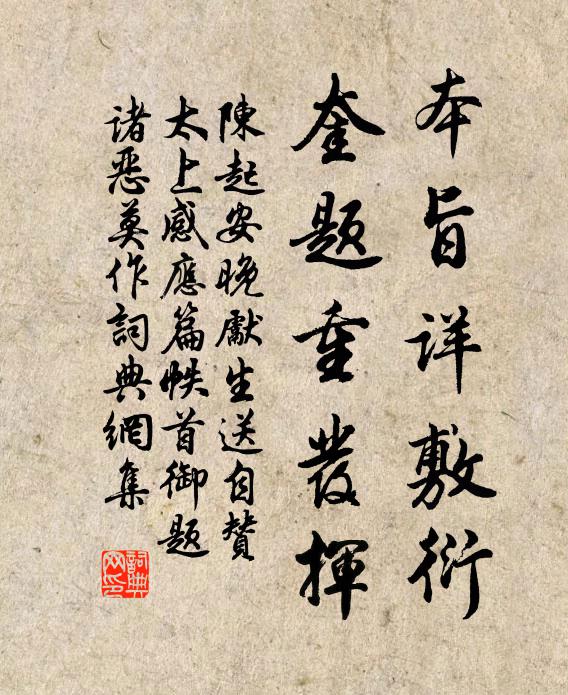 本旨详敷衍
奎题重发挥
陳起安晚獻生送自贊
太上感應篇帙首御題
諸惡莫作詞典網集
詞典网印